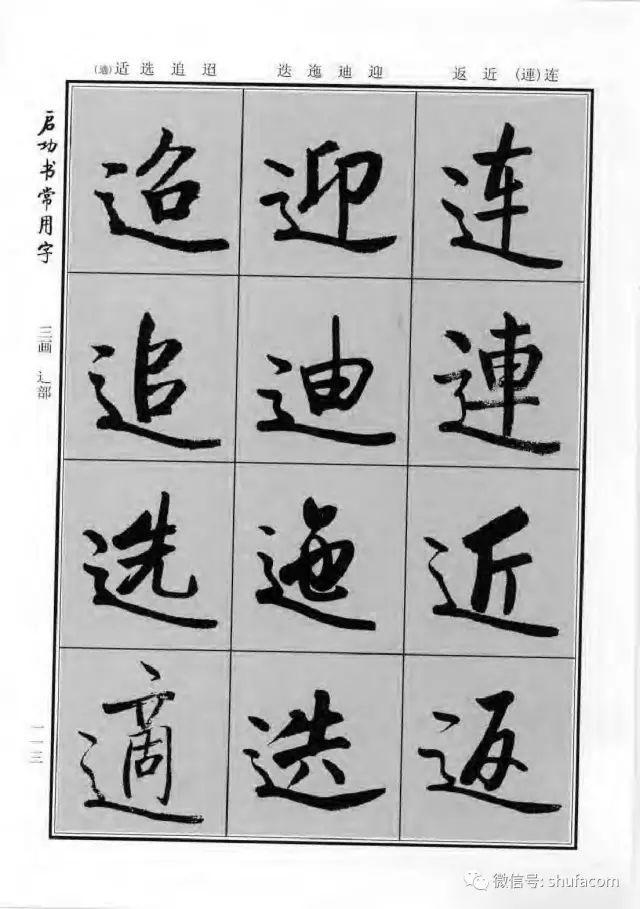 (適)适选追迢 迭迤迪迎 返近(連)连
启功书常用字
三画 辶部
一一三
连連近返
迎迪迤迭
迢追选適
微信号: shufacom